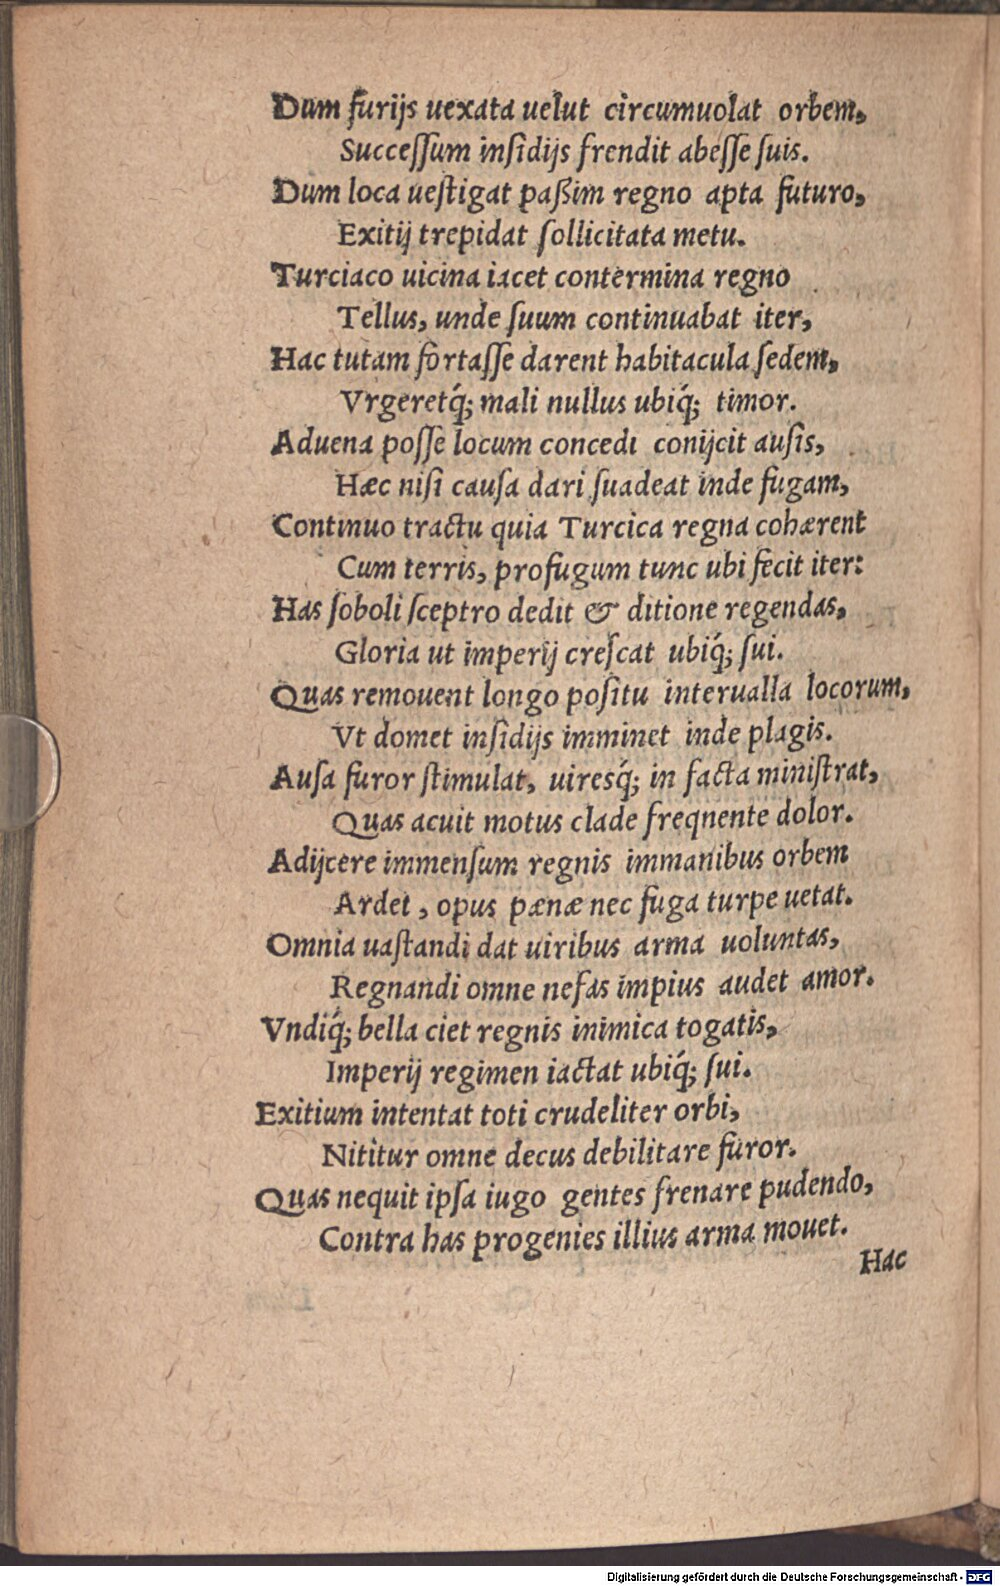 Dum furijs uexata uelut circumuolat orbem,
Succeſſum inſidijs frendit abeſſe ſuis.
Dum loca ueſtigat paßim regno apta futuro,
Exitij trepidat ſollicitata metu.
Turciaco uicina iacet contermina regno
Tellus, unde ſuum continuabat iter,
Hac tutam fortaſſe darent habitacula ſedem,
Vrgeretq́; mali nullus ubiq́; timor.
Aduena poſſe locum concedi conijcit auſis,
Hæc niſi cauſa dari ſuadeat inde fugam,
Continuo tractu quia Turcica regna cohærent
Cum terris, profugum tunc ubi fecit iter:
Has ſoboli ſceptro dedit & ditione regendas,
Gloria ut imperij creſcat ubiq́; ſui.
Quas remouent longo poſitu interualla locorum,
Vt domet inſidijs imminet inde plagis.
Auſa furor ſtimulat, uiresq́; in facta miniſtrat,
Quas acuit motus clade freqnente dolor.
Adijcere immenſum regnis immanibus orbem
Ardet, opus pænæ nec fuga turpe uetat.
Omnia uaſtandi dat uiribus arma uoluntas,
Regnandi omne nefas impius audet amor.
Vndiq́; bella ciet regnis inimica togatis,
Imperij regimen iactat ubiq́; ſui.
Exitium intentat toti crudeliter orbi,
Nititur omne decus debilitare furor.
Quas nequit ipſa iugo gentes frenare pudendo,
Contra has progenies illius arma mouet.
Hac
Digitalisierung gefördert durch die Deutsche Forschungsgemeinschaft - DFG